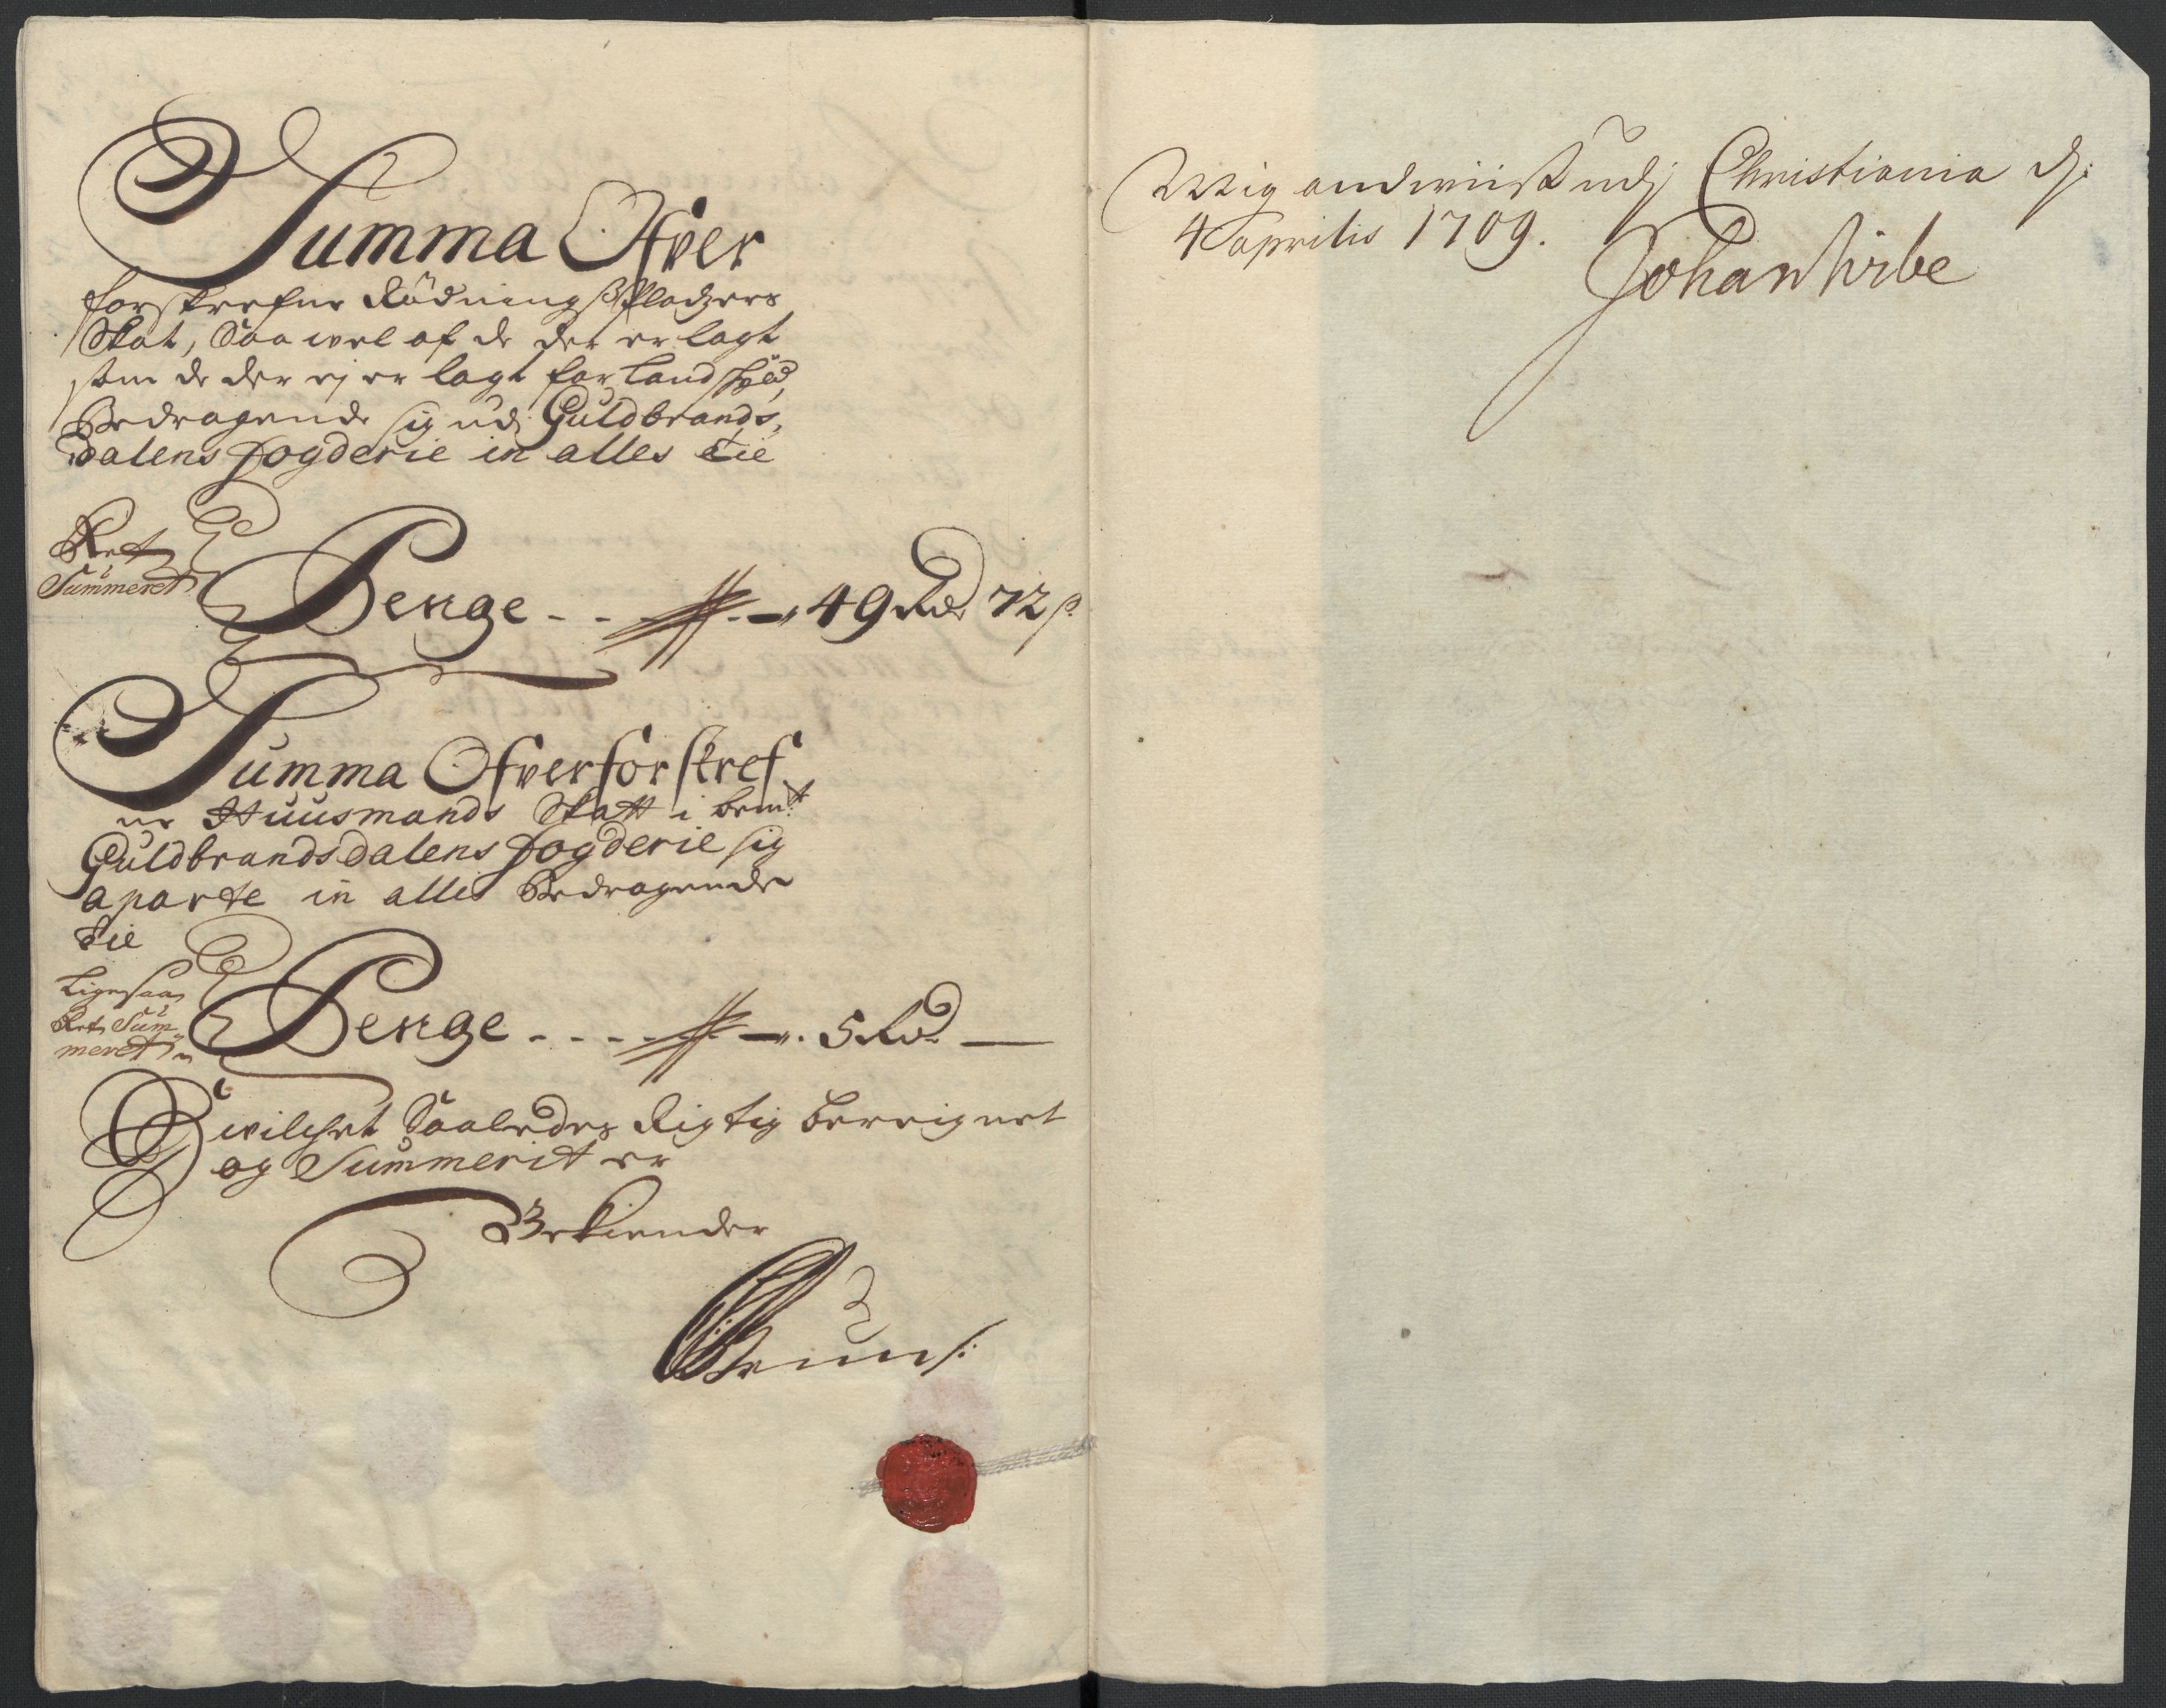 Summa Ofver
forskrefne Rödnings Pladzers
Skat, Saa vel af de der er lagt
som de der ej er lagt for Landskyld,
Bedragende sig udj Guldbrands,
dalens Fogderie in alles tie
Ret
Summeret
Penge - - - 49 Rdr 72 s
Summa Ofver forskref
ne Huusmands Skatt i bemt:
Guldbrandsdalens Fogderie sig
aparte in alles Bedragende
tie
Ligesaa
Ret Sum
meret
Penge - - - - 5 Rdr —
Hvilchet Saaledes Rigtig bereignet
og Summerit er
Bekiender
Wiig andviist udj Christiania d:
4 aprilis 1709.
Johan Vibe